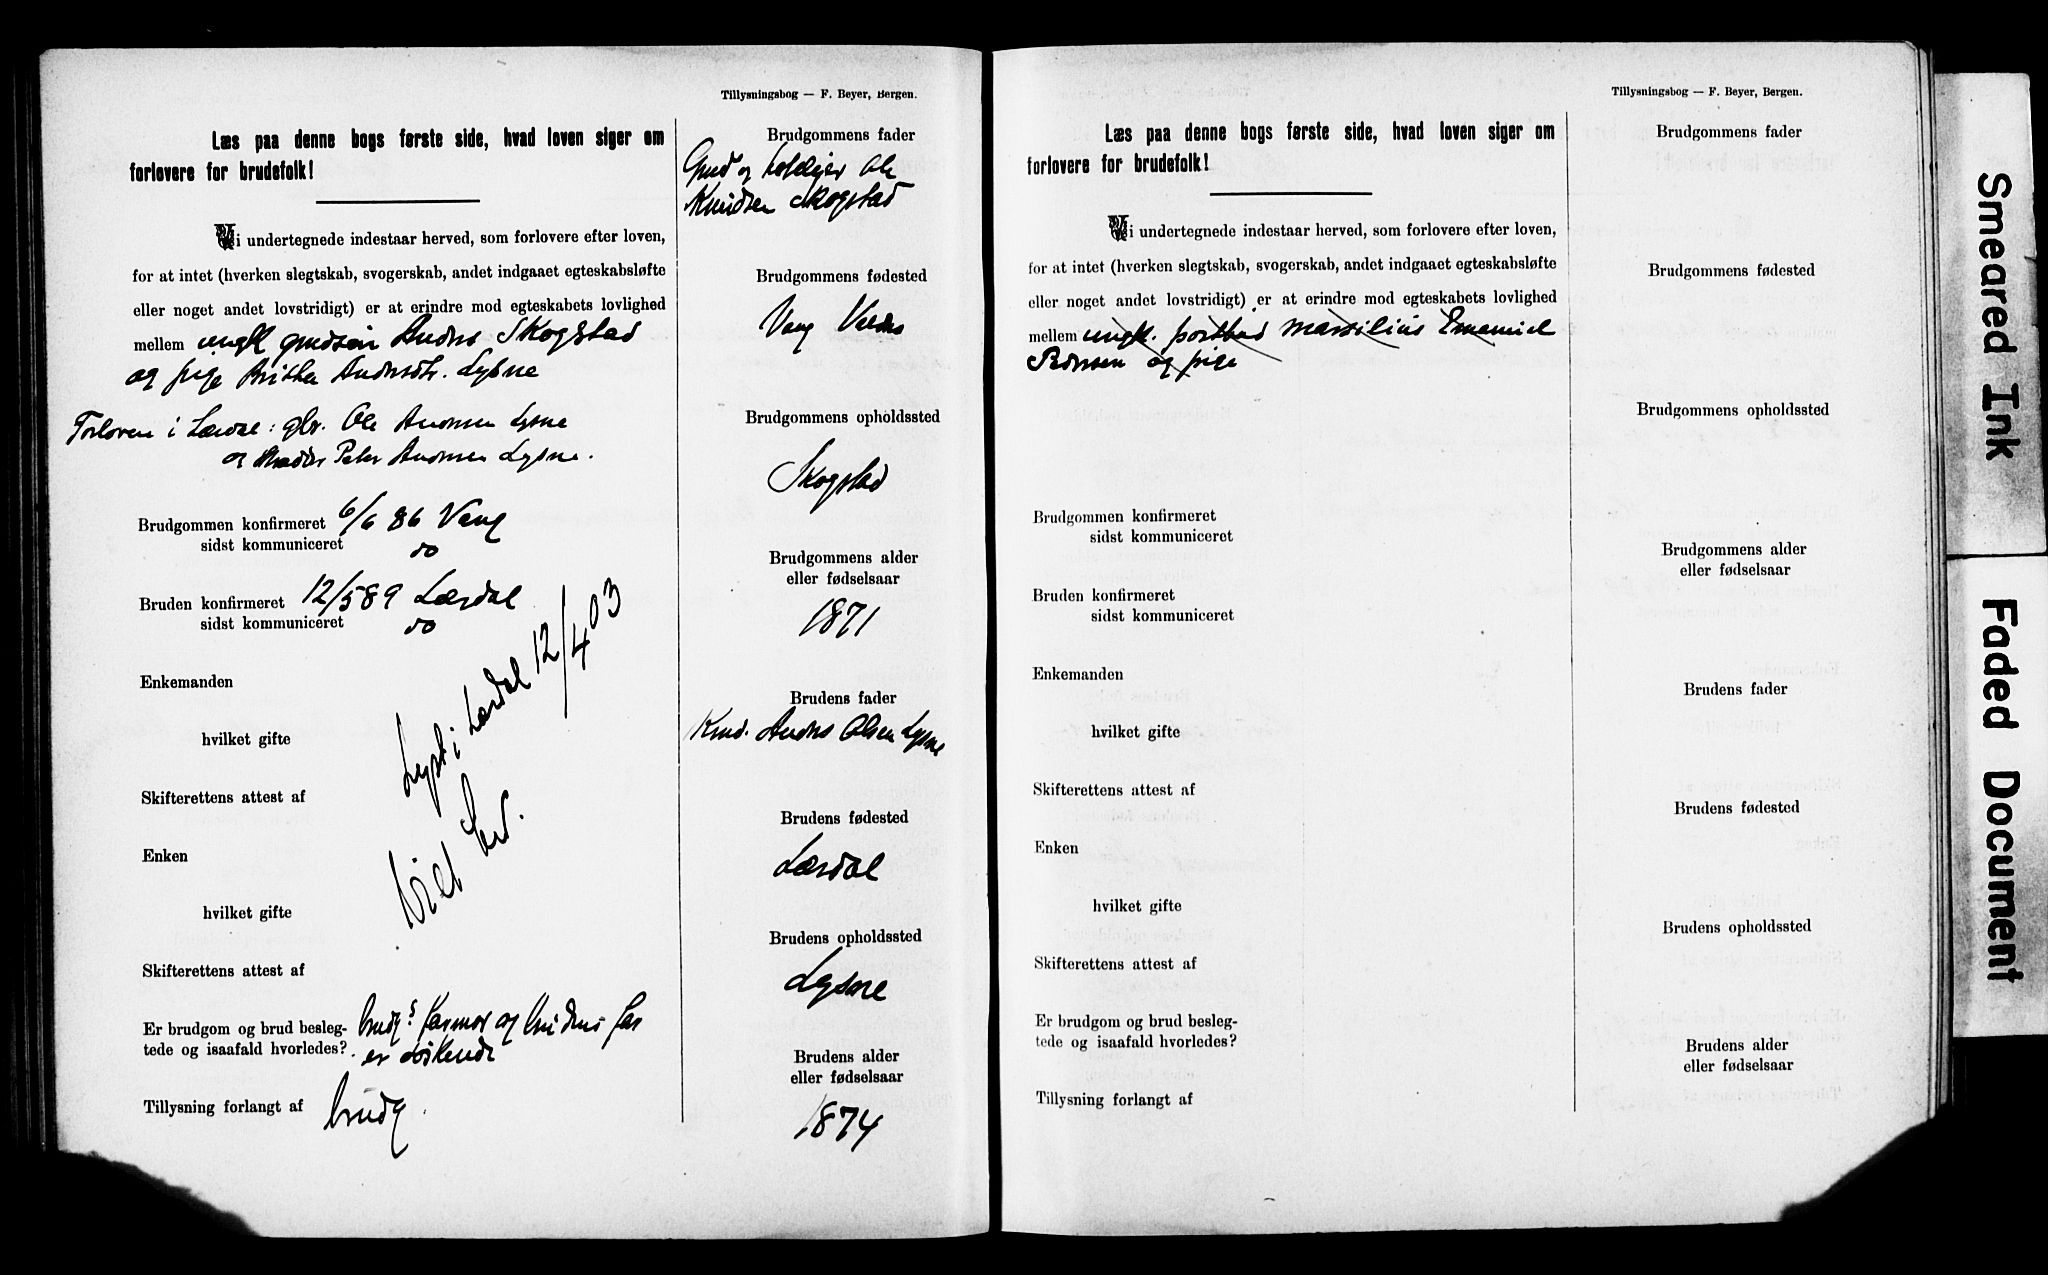 Tillysningsbog — F. Beyer, Bergen.
Læs paa denne bogs første side, hvad loven siger om
forlovere for brudefolk!
Vi undertegnede indestaar herved, som forlovere efter loven,
for at intet (hverken slegtskab, svogerskab, andet indgaaet egteskabsløfte
eller noget andet lovstridigt) er at erindre mod egteskabets lovlighed
mellem ungk. grudsøn Andres Skogstad
og pige Britha Andersdtr. Lysne
Forlovere i Lærdal: gbr. Ole Andersen Lysne
og Peter Andersen Lysne.
Brudgommen konfirmeret 6/6 86 Vang
sidst kommuniceret do
Bruden konfirmeret 12/5 89 Lærdal
sidst kommuniceret do
Enkemanden
hvilket gifte
Skifterettens attest af
Enken
hvilket gifte
Skifterettens attest af
Lyst i Lærdal 12/4 03
Viet
Er brudgom og brud besleg-
tede og isaafald hvorledes?
brudg.s farmor og brudens far
er søskende
Tillysning forlangt af brudg.
Brudgommens fader
Grud og Ole
Knudsen Skogstad
Brudgommens fødested
Vang Valdres
Brudgommens opholdssted
Skogstad
Brudgommens alder
eller fødselsaar
1871
Brudens fader
Andres Olsen Lysne
Brudens fødested
Lærdal
Brudens opholdssted
Lysne
Brudens alder
eller fødselsaar
1874
Tillysningsbog — F. Beyer, Bergen.
Læs paa denne bogs første side, hvad loven siger om
forlovere for brudefolk!
Vi undertegnede indestaar herved, som forlovere efter loven,
for at intet (hverken slegtskab, svogerskab, andet indgaaet egteskabsløfte
eller noget andet lovstridigt) er at erindre mod egteskabets lovlighed
mellem ungk. postbud Marsilius Emanuel
Pedersen og pige
Brudgommen konfirmeret
sidst kommuniceret
Bruden konfirmeret
sidst kommuniceret
Enkemanden
hvilket gifte
Skifterettens attest af
Enken
hvilket gifte
Skifterettens attest af
Er brudgom og brud besleg-
tede og isaafald hvorledes?
Tillysning forlangt af
Brudgommens fader
Brudgommens fødested
Brudgommens opholdssted
Brudgommens alder
eller fødselsaar
Brudens fader
Brudens fødested
Brudens opholdssted
Brudens alder
eller fødselsaar
Smeared Ink
Faded Document